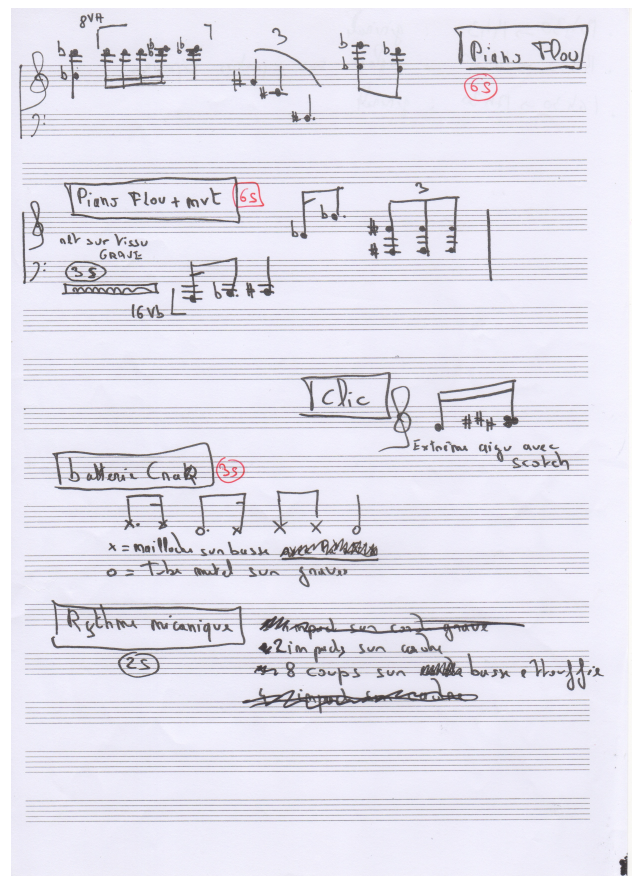 8VA
3
Piano Flou
6s
Piano Flou + mvt
6s
3
net sur tissu
GRAVE
3s
16Vb
Clic
Extrême aigu avec
scotch
batterie
3s
x = mailloche sur basse
o = Tube metal sur graves
Rythme mécanique
2s
impacts sur corde grave
2 impacts sur corde
8 coups sur basse etouffée
2 impacts sur cordes